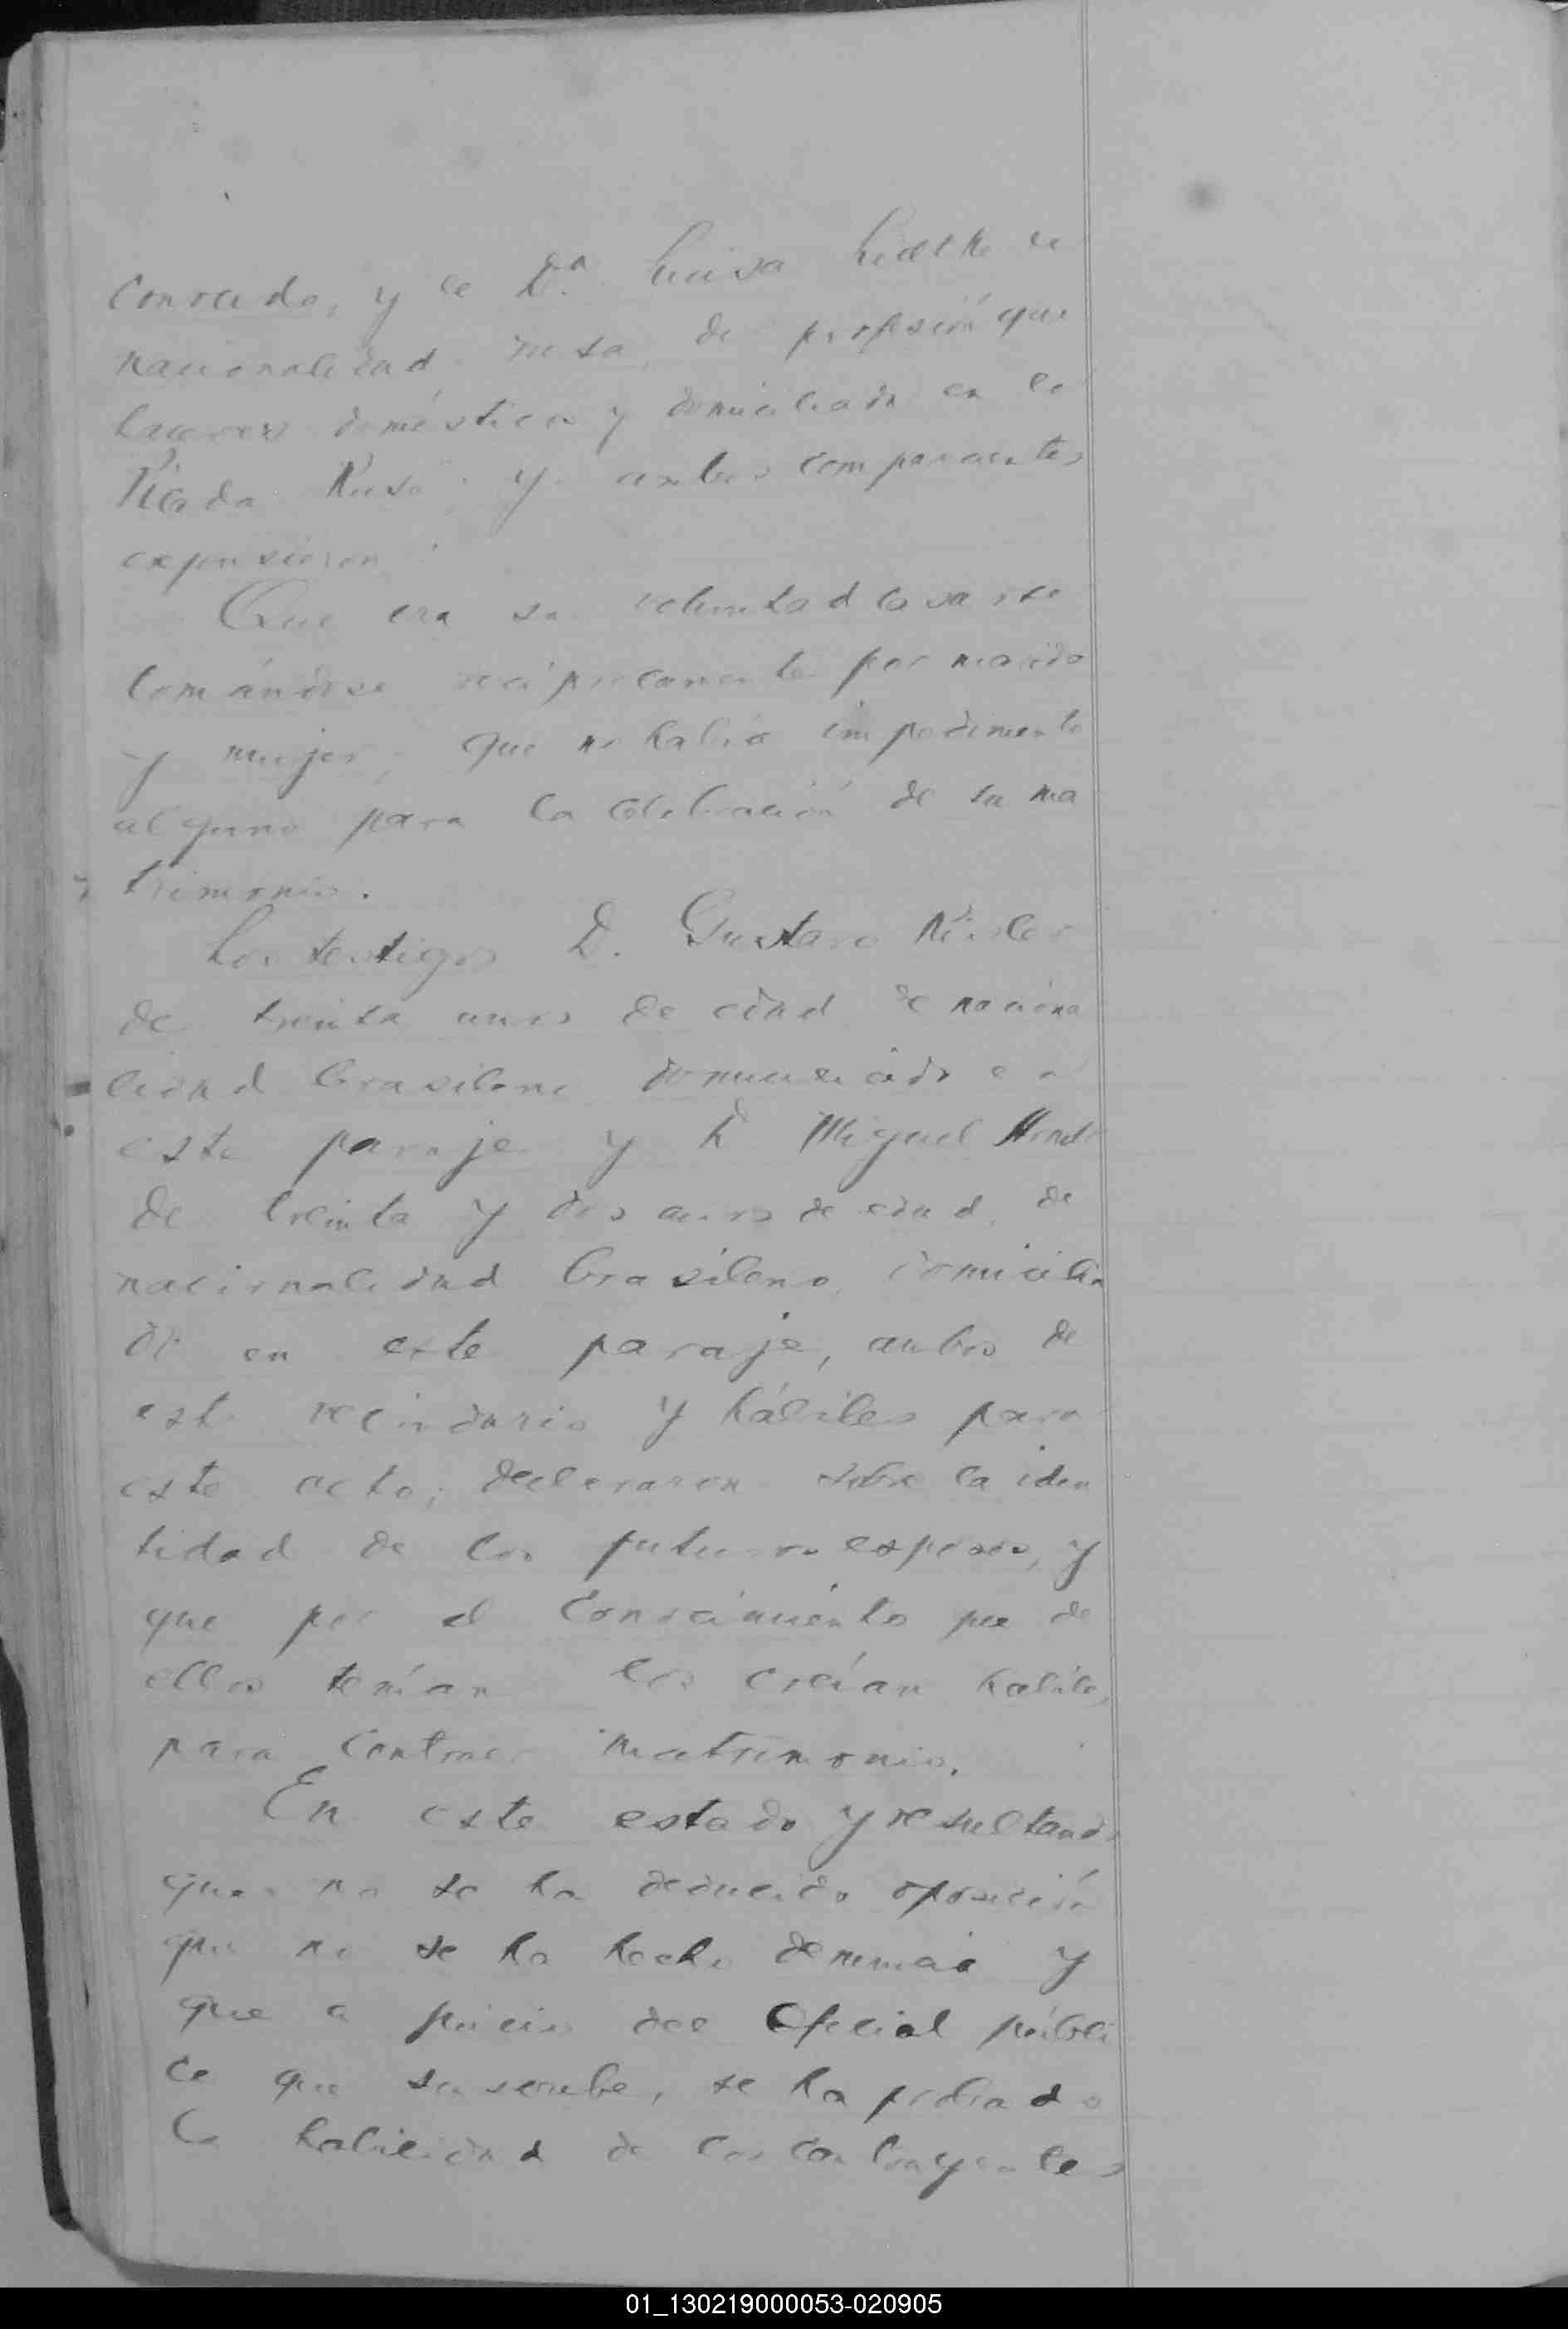 Conrado, y de D.ª Luisa de
nacionalidad rusa, de profesión que
haceres domésticos y domiciliada en la
Picada Rusa; y ambos comparecientes
expusieron:
Que era su voluntad casarse
tomándose reciprocamente por marido
y mujer; que no habia impedimento
alguno para la celebración de su ma
trimonio.
Los testigos D. Gustavo
de treinta anos de edad de naciona
lidad brasilena domiciliado en
este paraje y D Miguel
de treinta y dos anos de edad, de
nacionalidad brasileno, domicilia
do en este paraje, ambos de
este vecindario y hábiles para
este acto; declararon sobre la iden
tidad de los futuros esposos, y
que por el Conocimiento que de
ellos tenían los creían habiles
para contraer matrimonio.
En este estado y resultando
que no se ha deducido oposición
que no se ha hecho denuncia y
que a juicio del Oficial públi
co que suscribe, se ha probado
la habilidad de los contrayentes
01_130219000053-020905